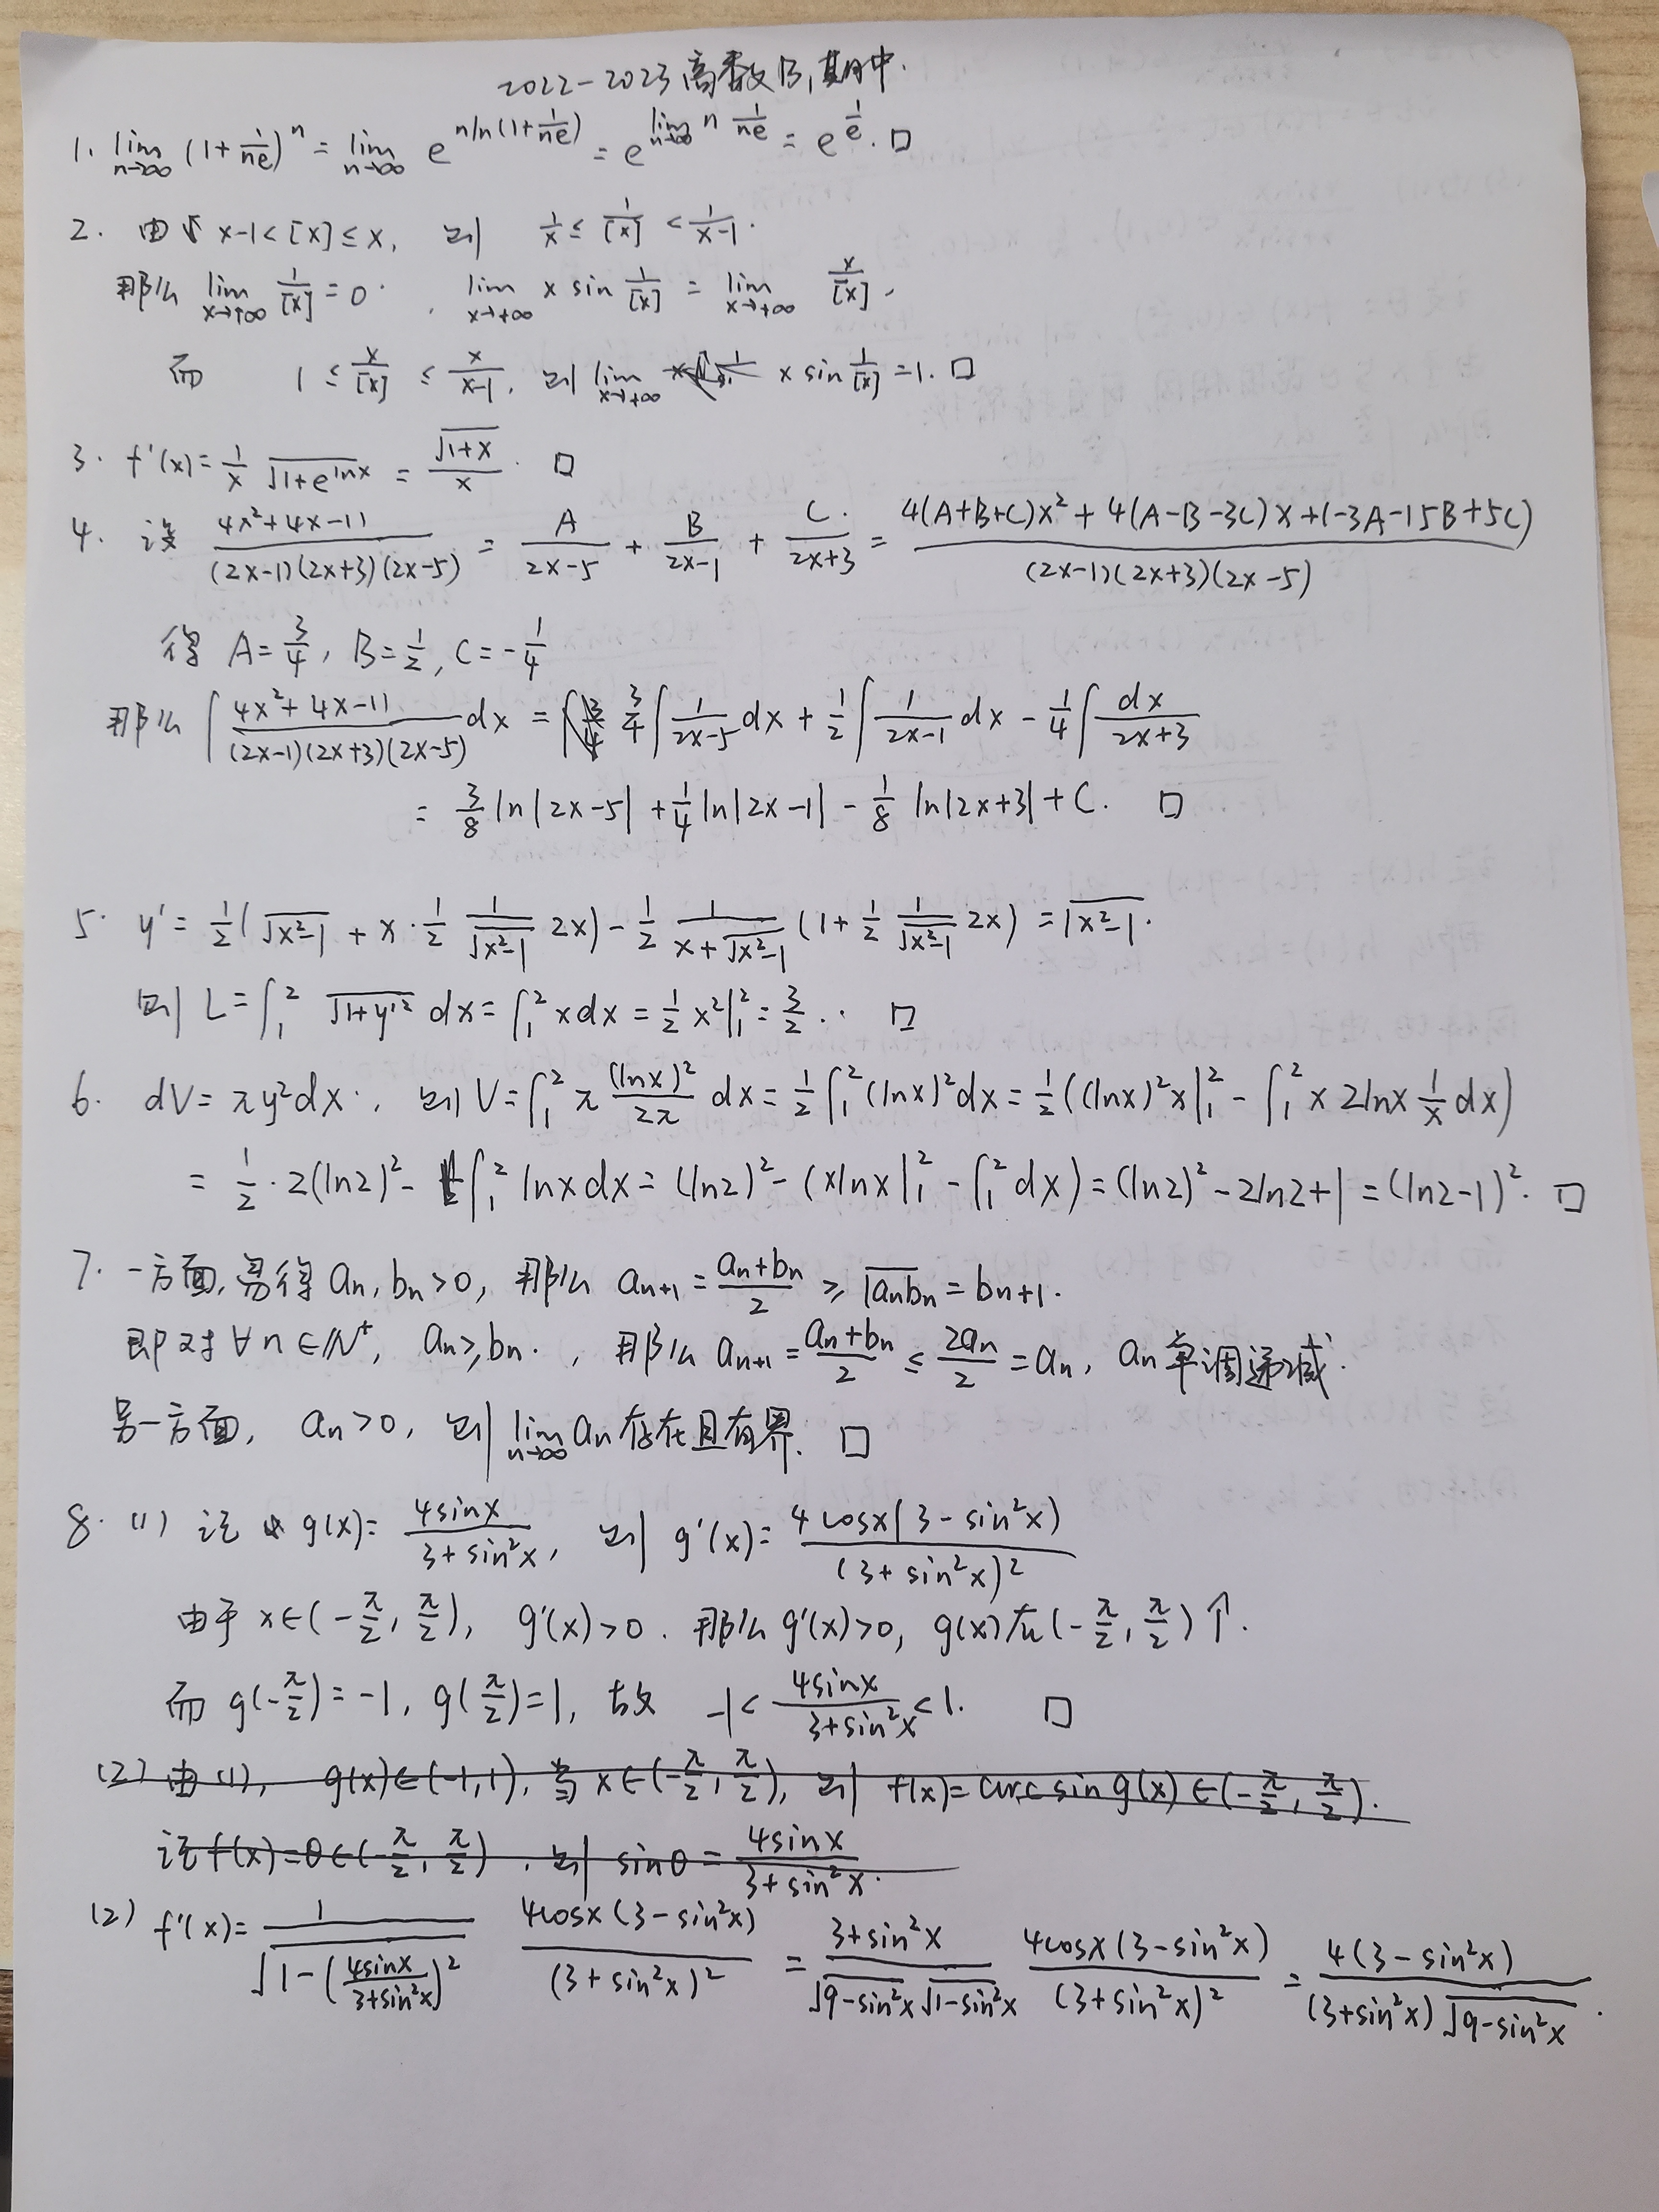 2022-2023高数B1期中.
1. lim_{n→∞} (1+1/(ne))^n = lim_{n→∞} e^{n ln(1+1/(ne))} = e^{lim_{n→∞} n 1/(ne)} = e^{1/e}. □
2. 由 x-1<[x]≤x, 则 1/x ≤ 1/[x] < 1/(x-1).
那么 lim_{x→+∞} 1/[x] = 0. , lim_{x→+∞} x sin 1/[x] = lim_{x→+∞} x/[x],
而 1 ≤ x/[x] ≤ x/(x-1), 则 lim_{x→+∞} x sin 1/[x] = 1. □
3. f'(x) = 1/x √(1+e^{lnx}) = √(1+x)/x. □
4. 设 (4x²+4x-11)/((2x-1)(2x+3)(2x-5)) = A/(2x-5) + B/(2x-1) + C/(2x+3) = (4(A+B+C)x²+4(A-B-3C)x+(-3A-15B+5C))/((2x-1)(2x+3)(2x-5))
得 A=3/4, B=1/2, C=-1/4
那么 ∫ (4x²+4x-11)/((2x-1)(2x+3)(2x-5)) dx = 3/4 ∫ 1/(2x-5) dx + 1/2 ∫ 1/(2x-1) dx - 1/4 ∫ dx/(2x+3)
= 3/8 ln|2x-5| + 1/4 ln|2x-1| - 1/8 ln|2x+3| + C. □
5. y' = 1/2(√(x²-1) + x·1/2 1/√(x²-1) 2x) - 1/2 1/(x+√(x²-1)) (1+1/2 1/√(x²-1) 2x) = √(x²-1).
则 L = ∫_1^2 √(1+y'²) dx = ∫_1^2 x dx = 1/2 x²|_1^2 = 3/2. □
6. dV = πy²dx. , 则 V = ∫_1^2 π (lnx)²/(2π) dx = 1/2 ∫_1^2 (lnx)²dx = 1/2((lnx)²x|_1^2 - ∫_1^2 x 2lnx 1/x dx)
= 1/2·2(ln2)² - ∫_1^2 lnx dx = (ln2)² - (xlnx|_1^2 - ∫_1^2 dx) = (ln2)² - 2ln2+1 = (ln2-1)². □
7. 一方面,易得 an, bn>0, 那么 a_{n+1} = (an+bn)/2 ≥ √(anbn) = b_{n+1}.
即对 ∀n∈N⁺, an≥bn. , 那么 a_{n+1} = (an+bn)/2 ≤ 2an/2 = an, an单调递减.
另一方面, an>0, 则 lim_{n→∞} an 存在且有界. □
8. (1) 记 g(x) = 4sinx/(3+sin²x), 则 g'(x) = 4cosx(3-sin²x)/(3+sin²x)²
由于 x∈(-π/2, π/2), g'(x)>0. 那么 g'(x)>0, g(x)在(-π/2, π/2)↑.
而 g(-π/2)=-1, g(π/2)=1, 故 -1 < 4sinx/(3+sin²x) < 1. □
(2) 由(1), g(x)∈(-1,1), 当 x∈(-π/2, π/2), 则 f(x)=arcsin g(x)∈(-π/2, π/2).
记 f(x)=θ∈(-π/2, π/2) , 则 sinθ = 4sinx/(3+sin²x).
(2) f'(x) = 1/√(1-(4sinx/(3+sin²x))²) 4cosx(3-sin²x)/(3+sin²x)² = (3+sin²x)/(√(9-sin²x)√(1-sin²x)) 4cosx(3-sin²x)/(3+sin²x)² = 4(3-sin²x)/((3+sin²x)√(9-sin²x)).